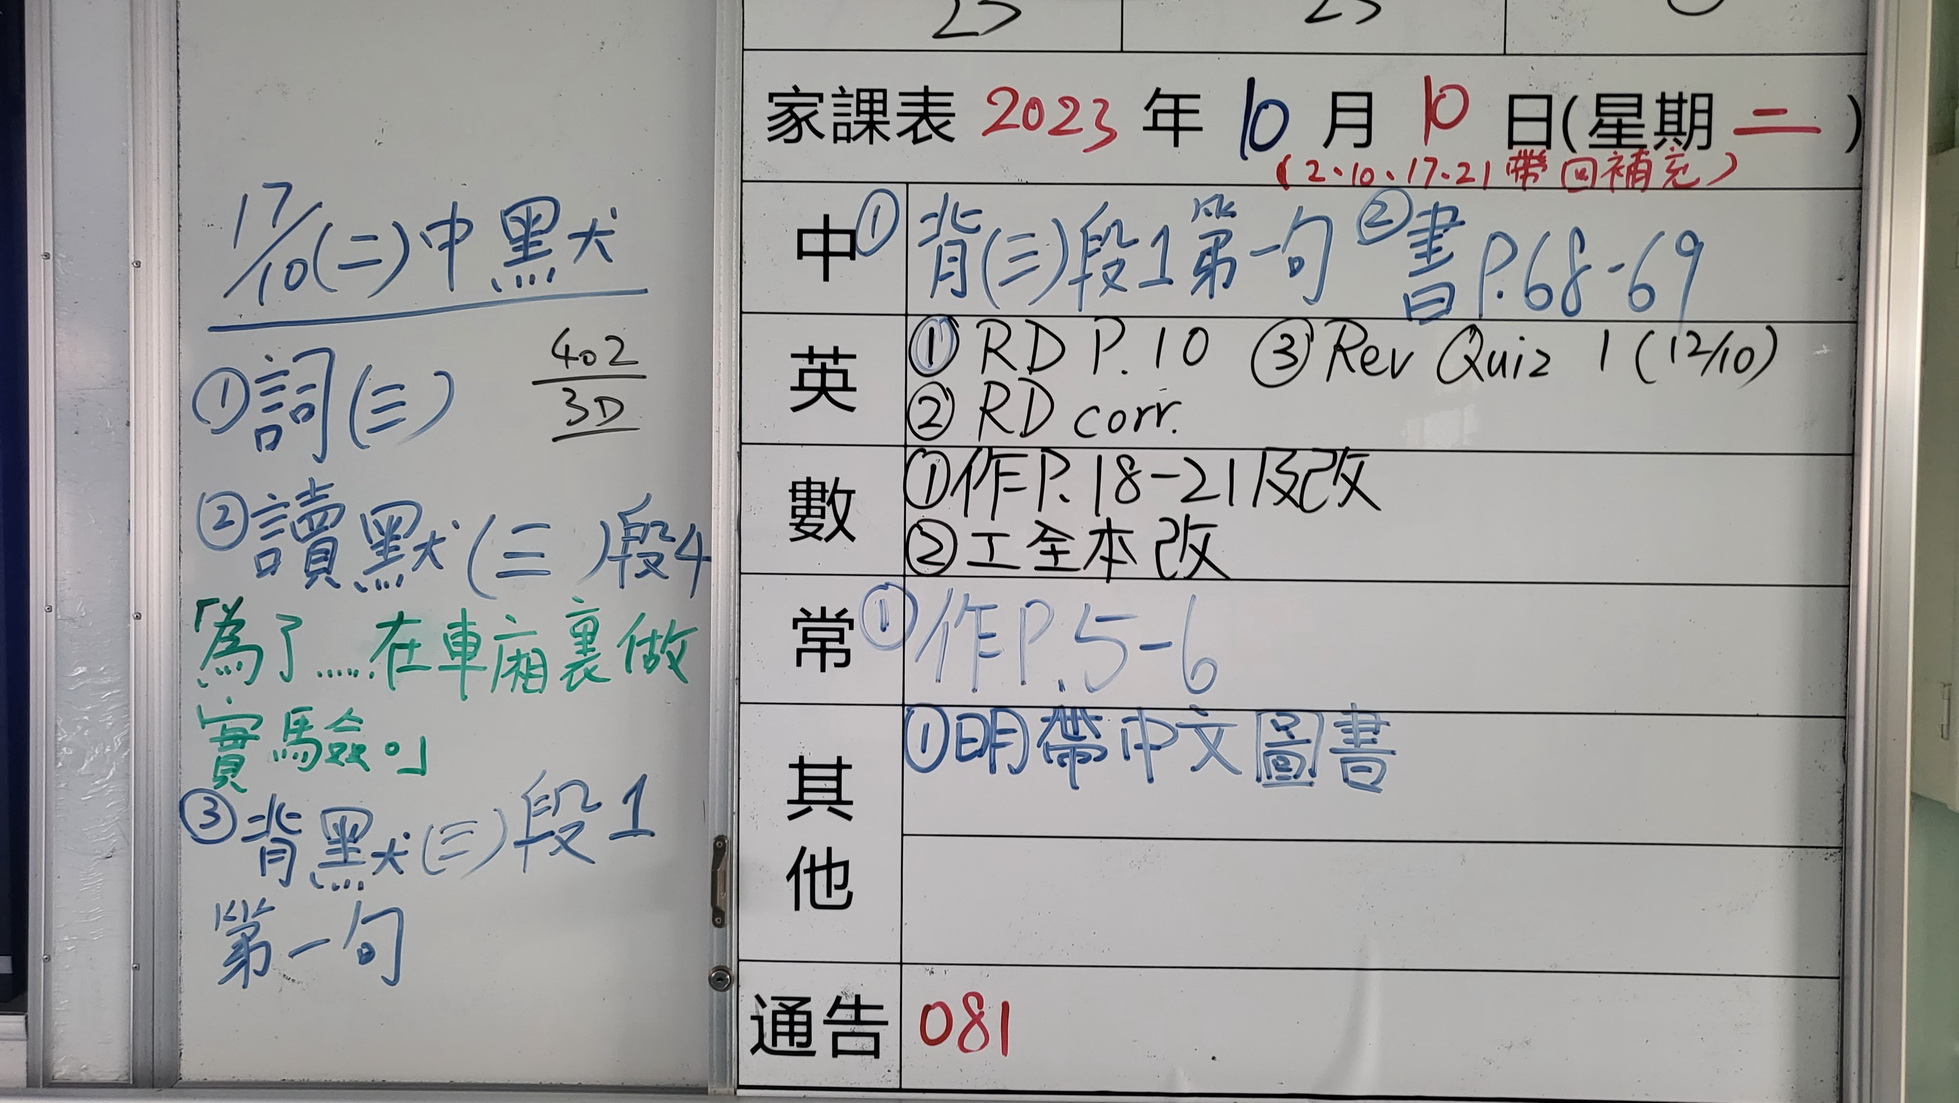 17/10(二)中默
①詞(三)
402
3D
②讀默(三)段4
「為了.....在車廂裏做
實驗。」
③背默(三)段1
第一句
家課表 2023 年 10 月 10 日(星期二)
(2、10、17、21帶回補充)
中 ①背(三)段1第一句 ②書P.68-69
英 ①RD P.10 ③Rev Quiz 1 (12/10)
②RD corr.
數 ①作P.18-21及改
②工全本改
常 ①作P.5-6
其他 ①明帶中文圖書
通告 081